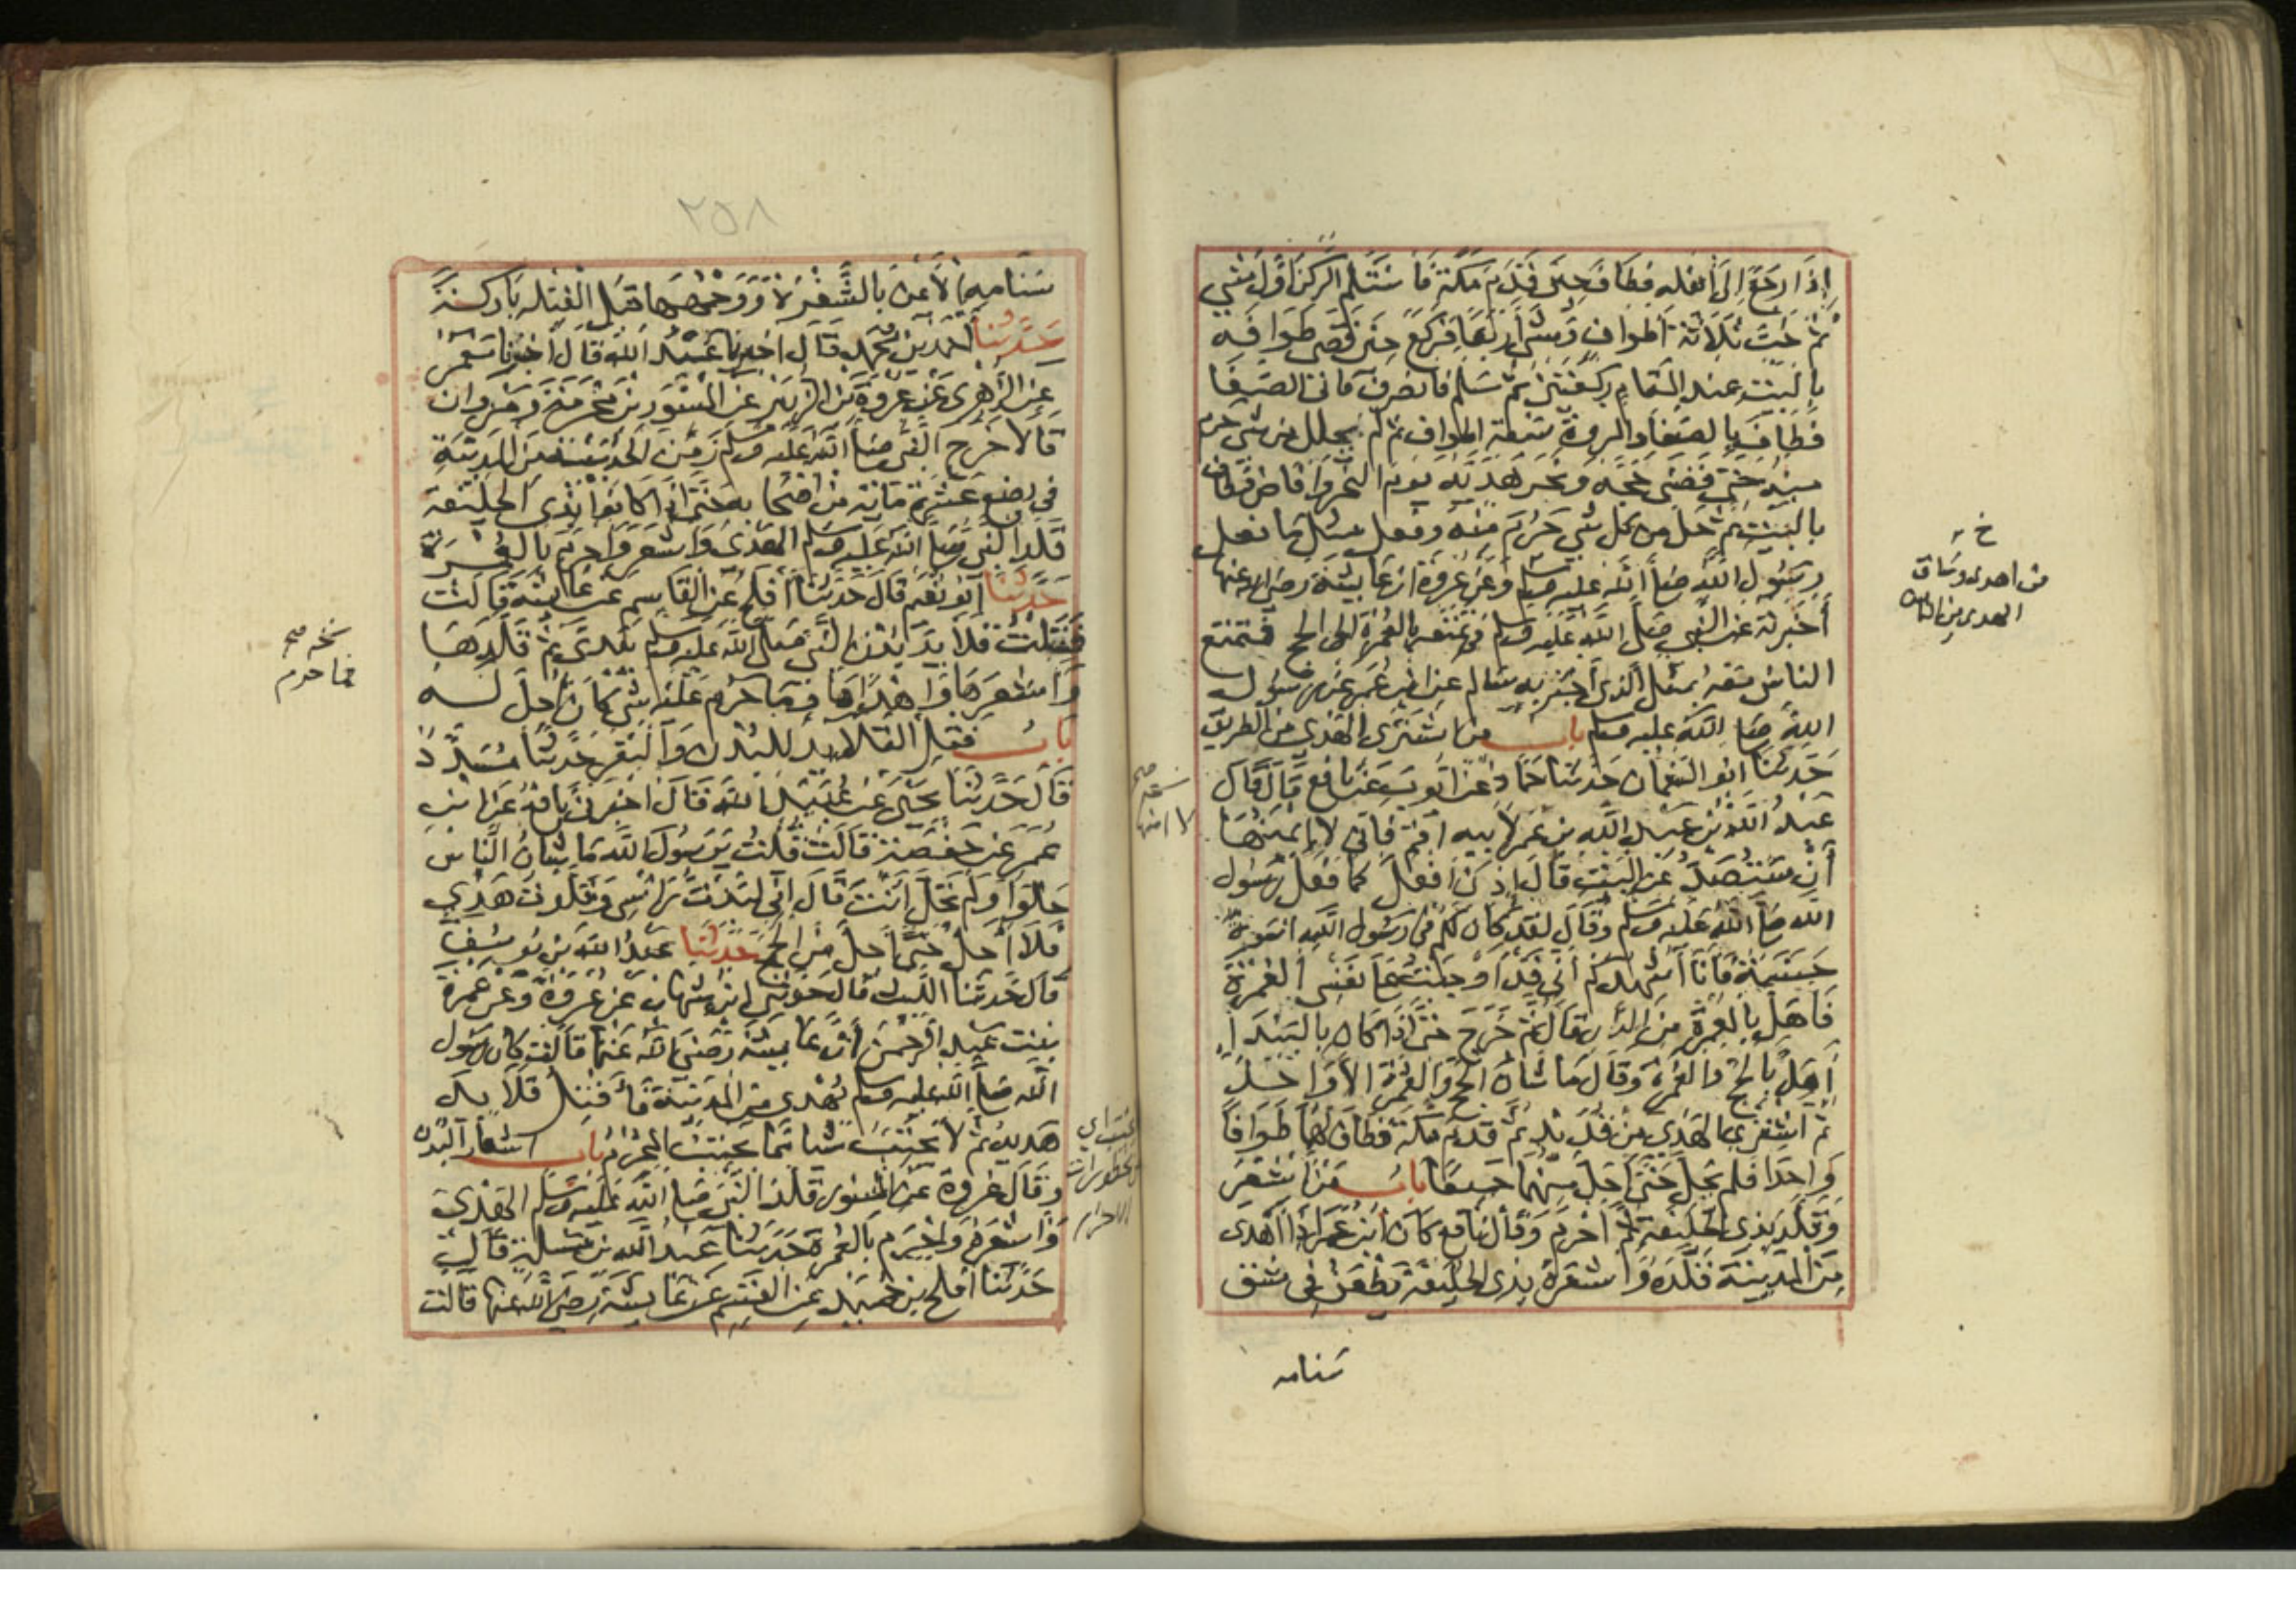 إذا رجع إلى أهله فطاف حين قدم مكة فاستلم الركن أول شي
ثم خب ثلاثة أطواف ومشى أربعا فركع حين قضى طوافه
بالبيت عند المقام ركعتين ثم سلم فانصرف فاتى الصفا
فطاف بالصفا والمروة سبعة اطواف ثم لم يحلل من شي حرم
منه حتى قضى حجه ونحر هديه يوم النحر وأفاض فطاف
بالبيت ثم حل من كل شي حرم منه وفعل مثل ما فعل
رسول الله صلى الله عليه وسلم وعن عروة ان عايشة رضي الله عنها
أخبرته عن النبي صلى الله عليه وسلم في تمتعه بالعمرة إلى الحج فتمتع
الناس معه بمثل الذي أخبرني به سالم عن ابن عمر عن رسول
الله صلى الله عليه وسلم باب من اشترى الهدي من الطريق
حدثنا ابو النعمان حدثنا حماد عن ايوب عن نافع قال قال
عبد الله بن عبد الله بن عمر لابيه اقم فاني لا امنها
أن ستصد عن البيت قال إذن أفعل كما فعل رسول
الله صلى الله عليه وسلم وقال لقد كان لكم في رسول الله اسوة
حسنة فأنا أشهدكم أني قد أوجبت على نفسي العمرة
فاهل بالعمرة من الدار قال ثم خرج حتى إذا كان بالبيداء
أهل بالحج والعمرة وقال ما شأن الحج والعمرة الا واحد
ثم اشترى الهدي من قديد ثم قدم مكة فطاف لهما طوافا
واحدا فلم يحل حتى أحل منهما جميعا باب من أشعر
وقلد بذي الحليفة ثم أحرم وقال نافع كان ابن عمر إذا أهدى
من المدينة قلده وأشعره بذي الحليفة يطعن في شق
سنامه
خ
من اهدى وساق
الهدي من الناس
٢٥٨
سنامه الأيمن بالشفرة ووجهها قبل القبلة باركة
حدثنا احمد بن محمد قال اخبرنا عبد الله قال أخبرنا معمر
عن الزهري عن عروة بن الزبير عن المسور بن مخرمة ومروان
قالا خرج النبي صلى الله عليه وسلم زمن الحديبية من المدينة
في بضع عشرة ماية من اصحابه حتى إذا كانوا بذي الحليفة
قلد النبي صلى الله عليه وسلم الهدي وأشعر وأحرم بالعمرة
حدثنا أبو نعيم قال حدثنا أفلح عن القاسم عن عايشة قالت
فتلت قلايد بدن النبي صلى الله عليه وسلم بيدي ثم قلدها
وأشعرها وأهداها فما حرم عليه شي كان أحل له
باب فتل القلايد للبدن والبقر حدثنا مسدد
قال حدثنا يحيى عن عبيد الله قال اخبرني نافع عن ابن
عمر عن حفصة قالت قلت يرسول الله ما شان الناس
حلوا ولم تحل أنت قال إني لبدت راسي وقلدت هديي
فلا أحل حتى أحل من الحج حدثنا عبد الله بن يوسف
قال حدثنا الليث قال حدثني ابن شهاب عن عروة وعن عمرة
بنت عبد الرحمن أن عايشة رضي الله عنها قالت كان رسول
الله صلى الله عليه وسلم يهدي من المدينة فأفتل قلايد
هديه ثم لا يجتنب شيا مما يجتنب المحرم باب اشعار البدن
وقال عروة عن المسور قلد النبي صلى الله عليه وسلم الهدي
وأشعره وأحرم بالعمرة حدثنا عبد الله بن مسلمة قالت
حدثنا افلح بن حميد عن القسم عن عايشة رضي الله عنها قالت
نخه صح
فما حرم
صح
لا امنها
محظورات
الاحرام